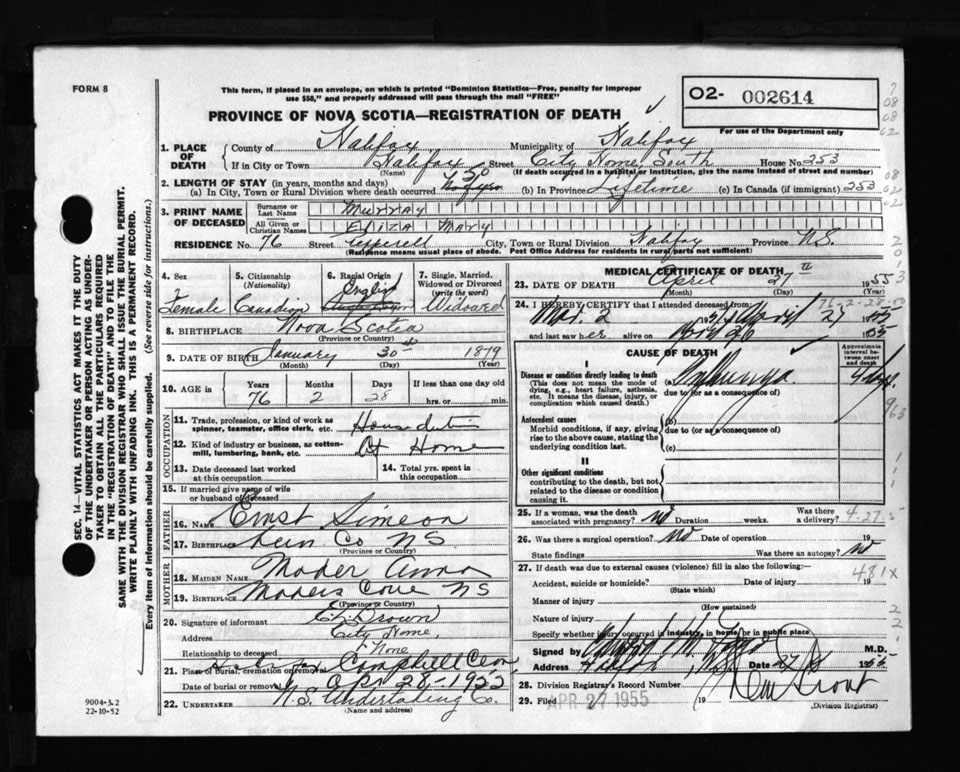 FORM 8
This form, if placed in an envelope, on which is printed "Dominion Statistics—Free, penalty for improper
use $50," and properly addressed will pass through the mail "FREE"
PROVINCE OF NOVA SCOTIA—REGISTRATION OF DEATH
O2- 002614
For use of the Department only
1. PLACE OF DEATH
County of Halifax Municipality of Halifax
If in City or Town Halifax Street City Home South House No. 253
(Name) (If death occurred in hospital or institution, give the name instead of street and number)
2. LENGTH OF STAY (in years, months and days)
(a) In City, Town or Rural Division where death occurred 50 (b) In Province Lifetime (c) In Canada (if immigrant) 253
3. PRINT NAME OF DECEASED
Surname or Last Name MURRAY
All Given or Christian Names ELIZA MARY
RESIDENCE No. 76 Street City, Town or Rural Division Halifax Province N.S.
(Residence means usual place of abode. Post Office Address for residents in rural parts not sufficient)
4. Sex Female
5. Citizenship (Nationality) Canadian
6. Racial Origin English
7. Single, Married, Widowed or Divorced (write the word) Widowed
8. BIRTHPLACE Nova Scotia
(Province or Country)
9. DATE OF BIRTH January 30th 1879
(Month) (Day) (Year)
10. AGE in Years Months Days If less than one day old
76 2 28 hrs. or min.
OCCUPATION
11. Trade, profession, or kind of work as spinner, teamster, office clerk, etc. House duties
12. Kind of industry or business, as cotton-mill, lumbering, bank, etc. At Home
13. Date deceased last worked at this occupation
14. Total yrs. spent in this occupation
15. If married give name of wife or husband of deceased
FATHER
16. NAME Ernst Simeon
17. BIRTHPLACE Lun Co NS
(Province or Country)
MOTHER
18. MAIDEN NAME Mader Anna
19. BIRTHPLACE Maders Cove NS
(Province or Country)
20. Signature of informant E. Brown
Address City Home,
Relationship to deceased None
21. Place of burial, cremation or removal Campbell Cem
Date of burial or removal Apr 28-1955
22. UNDERTAKER N.S. Undertaking Co.
(Name and address)
MEDICAL CERTIFICATE OF DEATH
23. DATE OF DEATH April 27 1955
(Month) (Day)
24. I HEREBY CERTIFY that I attended deceased from
76-2-28-00
Mar. 2 19 April 27 1955
and last saw her alive on April 26 1955
CAUSE OF DEATH
Approximate interval between onset and death
I
Disease or condition directly leading to death
(This does not mean the mode of dying, e.g., heart failure, asthenia, etc. It means the disease, injury, or complication which caused death.)
(a)
due to (or as a consequence of)
Antecedent causes
Morbid conditions, if any, giving rise to the above cause, stating the underlying condition last.
(b)
due to (or as a consequence of)
(c)
II
Other significant conditions
contributing to the death, but not related to the disease or condition causing it.
25. If a woman, was the death associated with pregnancy? No Duration weeks. Was there a delivery?
4-27-5
26. Was there a surgical operation? No Date of operation 19
State findings Was there an autopsy? No
27. If death was due to external causes (violence) fill in also the following:—
481X
Accident, suicide or homicide? Date of injury 19
(State which)
Manner of injury
(How sustained)
Nature of injury
Specify whether injury occurred in industry, in home, or in public place
Signed by M.D.
Address Halifax, Date 27 1955
28. Division Registrar's Record Number
29. Filed APR 27 1955 19
(Division Registrar)
SEC. 14—VITAL STATISTICS ACT MAKES IT THE DUTY
OF THE UNDERTAKER OR PERSON ACTING AS UNDER-
TAKER TO OBTAIN ALL THE PARTICULARS REQUIRED
IN THE "REGISTRATION OF DEATH" AND TO FILE THE
SAME WITH THE DIVISION REGISTRAR WHO SHALL ISSUE THE BURIAL PERMIT.
WRITE PLAINLY WITH UNFADING INK. THIS IS A PERMANENT RECORD.
Every item of information should be carefully supplied. (See reverse side for instructions.)
9004-3.2
22-10-52